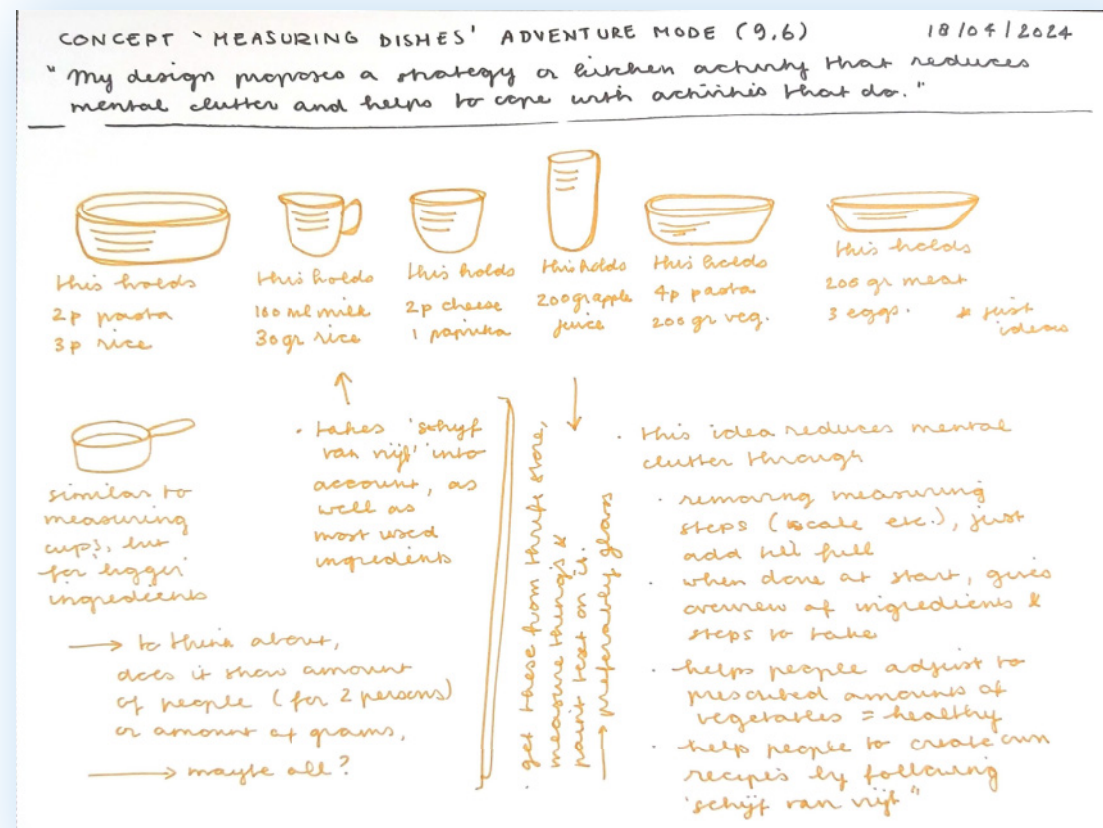 CONCEPT 'MEASURING DISHES' ADVENTURE MODE (9.6) 18/04/2024
"My design proposes a strategy or kitchen activity that reduces
mental clutter and helps to cope with activities that do."
this holds
2p pasta
3p rice
this holds
160 ml milk
30gr rice
this holds
2p cheese
1 paprika
this holds
200gr apple
juice
this holds
4p pasta
200gr veg.
this holds
200 gr meat
3 eggs.
* just
ideas
similar to
measuring
cups, but
for 'bigger'
ingredients
· takes 'schyf
van vijf' into
account, as
well as
most used
ingredients
→ to think about,
does it show amount
of people (for 2 persons)
or amount of grams,
→ maybe all?
· get these from thrift store,
measure things &
paint text on it.
→ preferably glass
· this idea reduces mental
clutter through
· removing measuring
steps (scale etc.), just
add till full
· when done at start, gives
overview of ingredients &
steps to take
· helps people adjust to
prescribed amounts of
vegetables = healthy
· help people to create own
recipes by following
'schijf van vijf"